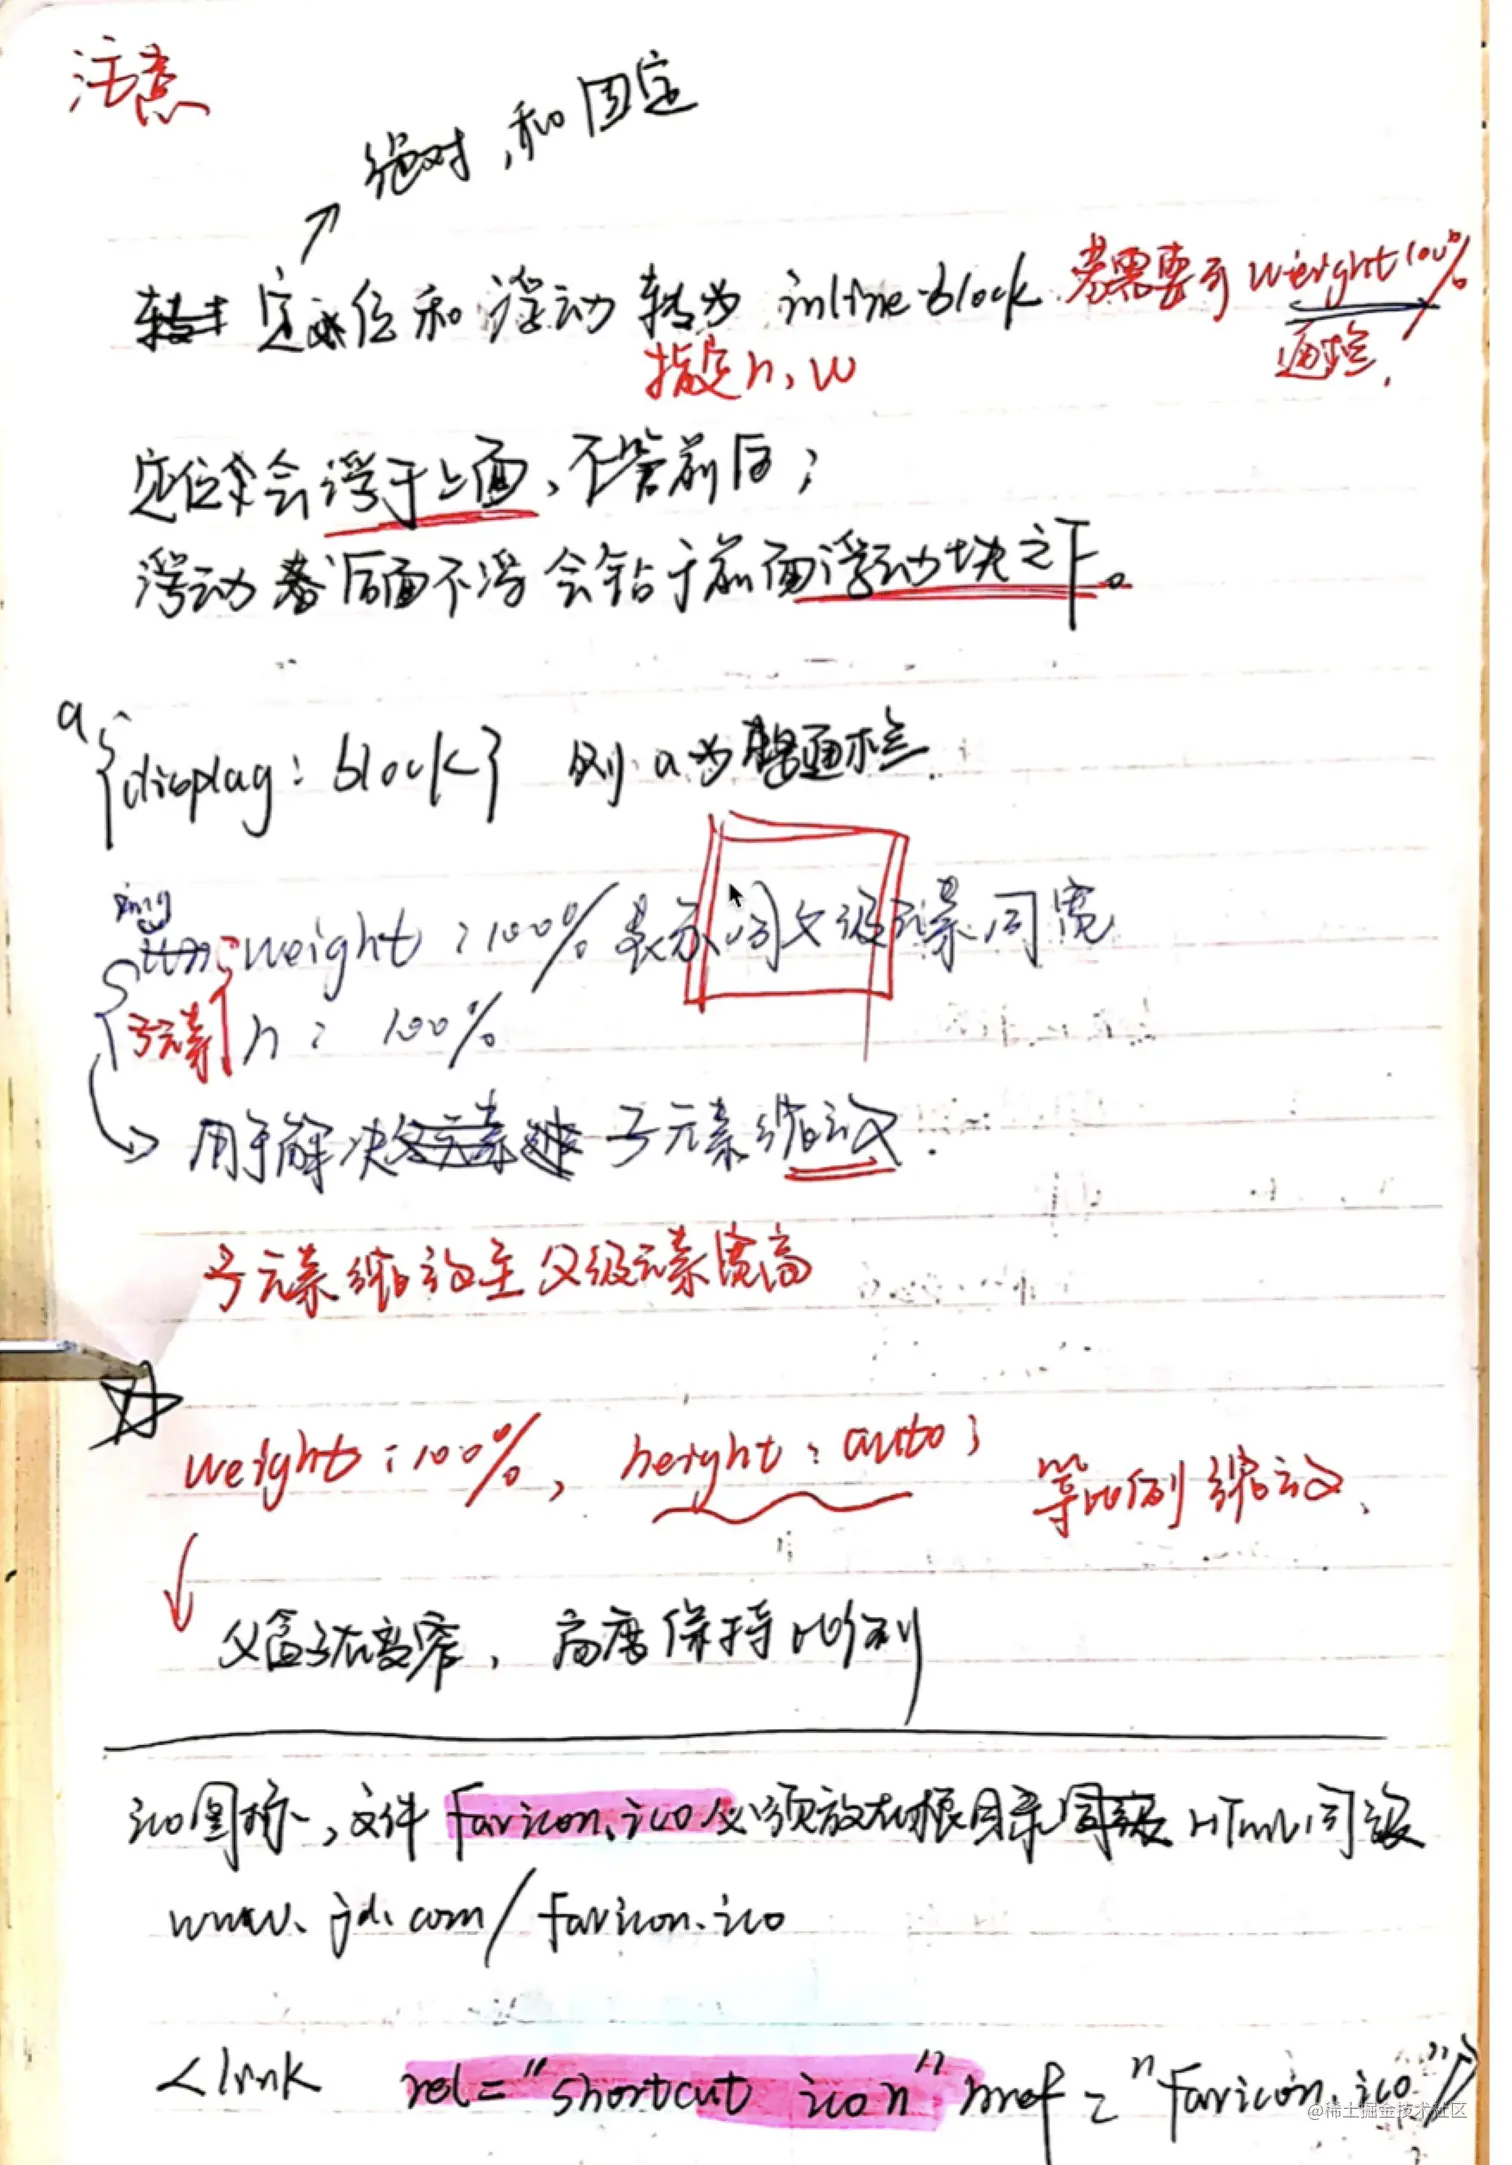 注意
绝对,和固定
定位和浮动 转为 inline-block 若需要可 weight 100%
指定h、w 通栏.
定位会浮于上面、不管前后;
浮动 若后面不浮 会钻于前面浮动块之下。
a
{display: block} 则 a 为整通栏.
img
weight:100% 表示同父级元素同宽
子元素 h: 100%
用于解决 子元素缩放.
子元素缩放至父级元素宽高
weight:100%, height: auto; 等比例缩放、
父盒子在变窄, 高度保持比例
ico图标, 文件 favicon.ico 必须放在根目录 HTML 同级
www.jd.com/favicon.ico
<link rel="shortcut icon" href="favicon.ico"/>
@稀土掘金技术社区